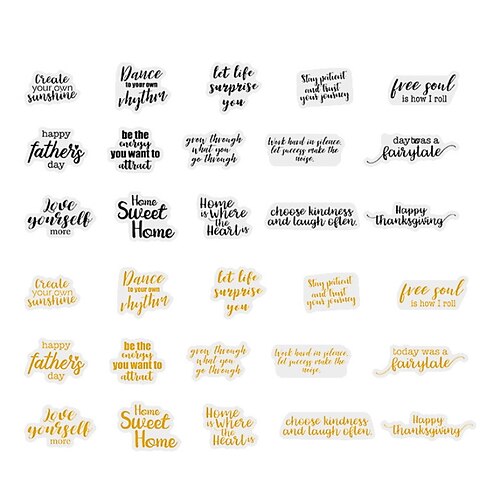 Create
your own
sunshine
Dance
to your own
rhythm
let life
surprise
you
Stay patient
and trust
your journey
free soul
is how I roll
happy
father's
day
be the
energy
you want to
attract
grow through
what you
go through
Work hard in silence,
let success make the
noise.
day was a
fairytale
Love
yourself
more
Home
Sweet
Home
Home
is Where
the
Heart is
choose kindness
and laugh often.
Happy
thanksgiving
Create
your own
sunshine
Dance
to your own
rhythm
let life
surprise
you
Stay patient
and trust
your journey
free soul
is how I roll
happy
father's
day
be the
energy
you want to
attract
grow through
what you
go through
Work hard in silence,
let success make the
noise.
today was a
fairytale
Love
yourself
more
Home
Sweet
Home
Home
is Where
the
Heart is
choose kindness
and laugh often.
Happy
thanksgiving